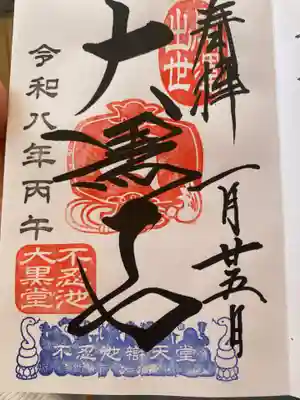 奉拝
出世
一月廿五日
大黒天
令和八年丙午
不忍池
大黒堂
不忍池辯天堂